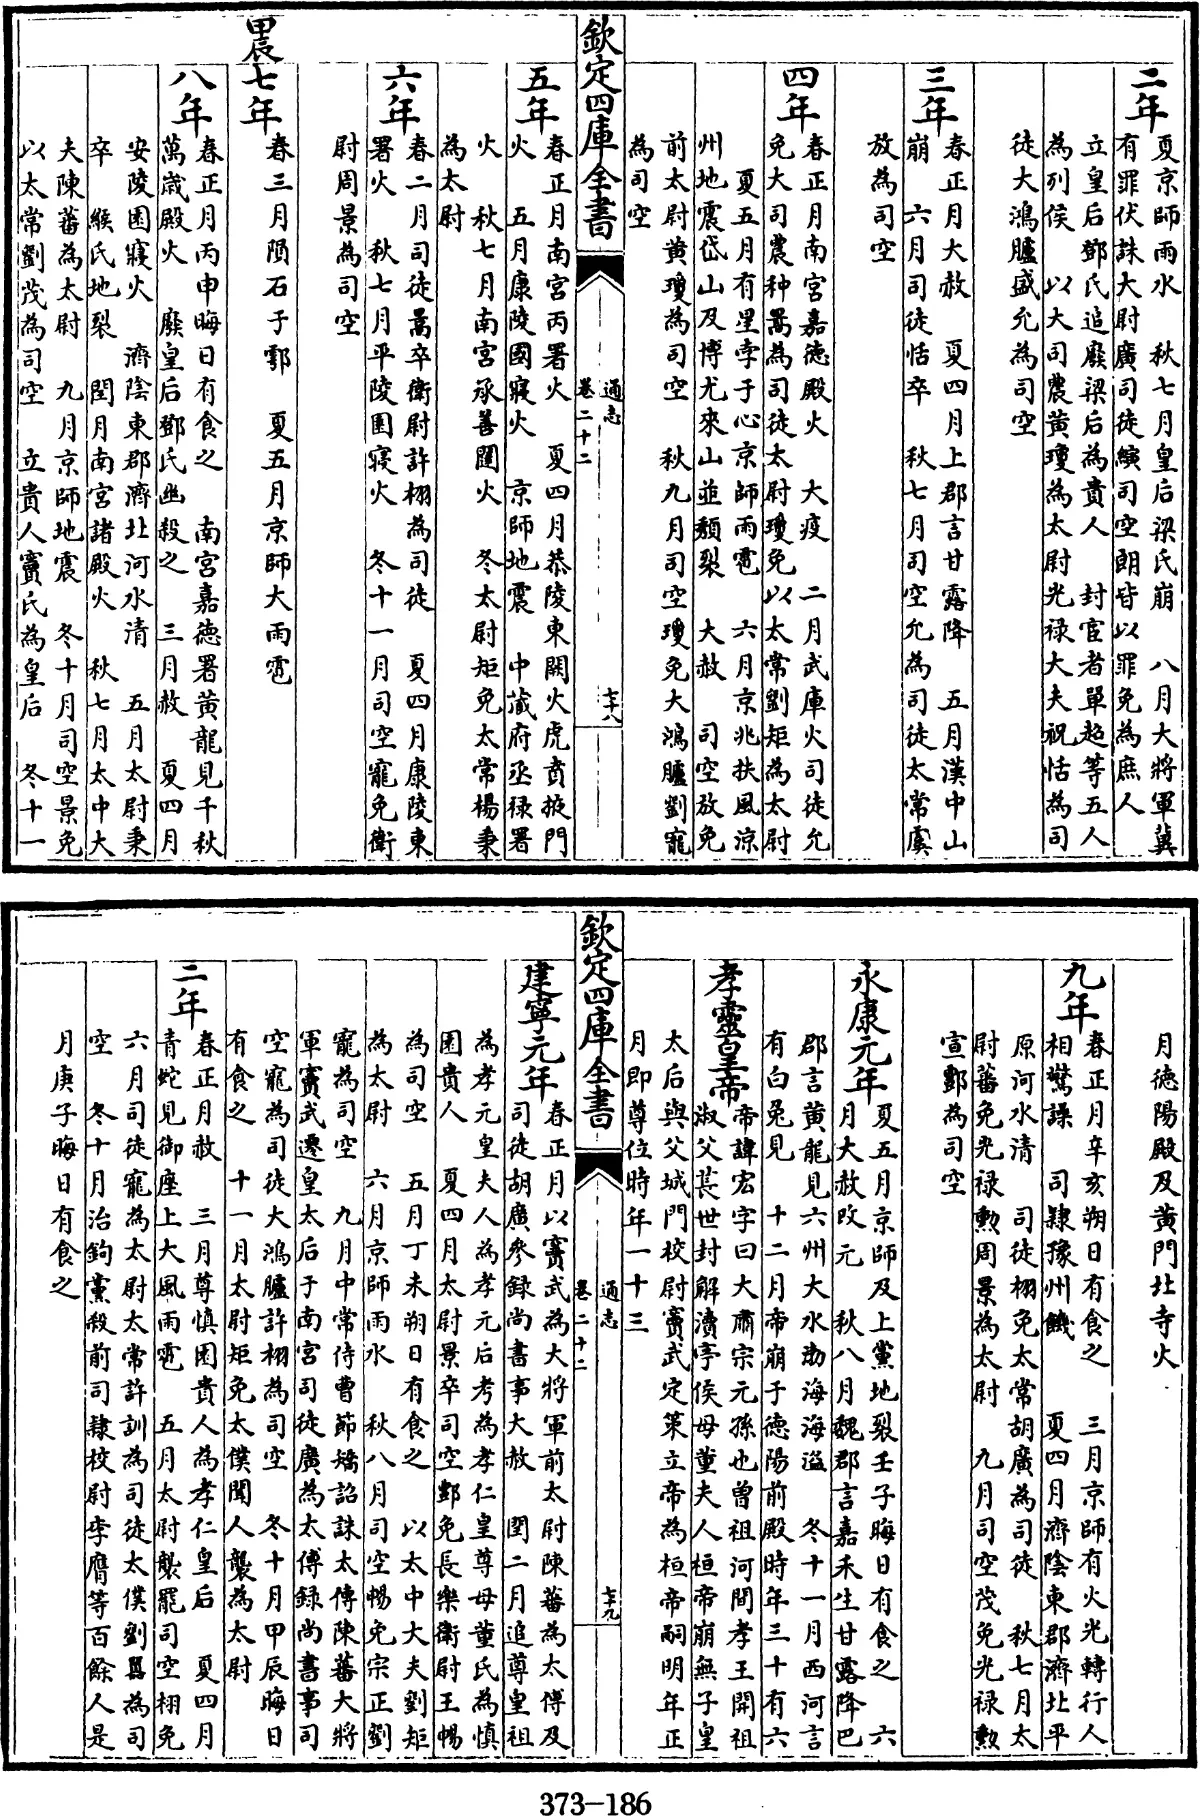 二年
夏京師雨水　秋七月皇后梁氏崩　八月大將軍冀
有罪伏誅大尉廣司徒縯司空朗皆以罪免為庶人
立皇后鄧氏追廢梁后為貴人　封宦者單超等五人
為列侯　以大司農黃瓊為太尉光祿大夫祝恬為司
徒大鴻臚盛允為司空
三年
春正月大赦　夏四月上郡言甘露降　五月漢中山
崩　六月司徒恬卒　秋七月司空允為司徒太常虞
放為司空
四年
春正月南宮嘉徳殿火　大疫　二月武庫火司徒允
免大司農种暠為司徒太尉瓊免以太常劉矩為太尉
夏五月有星孛于心京師雨雹　六月京兆扶風涼
州地震岱山及博尤來山並頽裂　大赦　司空放免
前太尉黃瓊為司空　秋九月司空瓊免大鴻臚劉寵
為司空
欽定四庫全書
通志
卷二十二
七十八
五年
春正月南宮丙署火　夏四月恭陵東闕火虎賁掖門
火　五月康陵園寢火　京師地震　中藏府丞祿署
火　秋七月南宮承善闥火　冬太尉矩免太常楊秉
為太尉
六年
春二月司徒暠卒衛尉許栩為司徒　夏四月康陵東
署火　秋七月平陵園寢火　冬十一月司空寵免衛
尉周景為司空
甲辰
七年
春三月隕石于鄠　夏五月京師大雨雹
八年
春正月丙申晦日有食之　南宮嘉德署黃龍見千秋
萬歲殿火　廢皇后鄧氏幽殺之　三月赦　夏四月
安陵園寢火　濟陰東郡濟北河水清　五月太尉秉
卒　緱氏地裂　閏月南宮諸殿火　秋七月太中大
夫陳蕃為太尉　九月京師地震　冬十月司空景免
以太常劉茂為司空　立貴人竇氏為皇后　冬十一
月德陽殿及黃門北寺火
九年
春正月辛亥朔日有食之　三月京師有火光轉行人
相驚譟　司隸豫州饑　夏四月濟陰東郡濟北平
原河水清　司徒栩免太常胡廣為司徒　秋七月太
尉蕃免光祿勲周景為太尉　九月司空茂免光祿勲
宣酆為司空
永康元年
夏五月京師及上黨地裂壬子晦日有食之　六
月大赦改元　秋八月魏郡言嘉禾生甘露降巴
郡言黃龍見六州大水勃海海溢　冬十一月西河言
有白兔見　十二月帝崩于德陽前殿時年三十有六
孝靈皇帝
帝諱宏字曰大肅宗元孫也曾祖河間孝王開祖
淑父萇世封解瀆亭侯母董夫人桓帝崩無子皇
太后與父城門校尉竇武定策立帝為桓帝嗣明年正
月即尊位時年一十三
欽定四庫全書
通志
卷二十二
七十九
建寧元年
春正月以竇武為大將軍前太尉陳蕃為太傅及
司徒胡廣參録尚書事大赦　閏二月追尊皇祖
為孝元皇夫人為孝元后考為孝仁皇尊母董氏為慎
園貴人　夏四月太尉景卒司空酆免長樂衛尉王暢
為司空　五月丁未朔日有食之　以太中大夫劉矩
為太尉　六月京師雨水　秋八月司空暢免宗正劉
寵為司空　九月中常侍曹節矯詔誅太傅陳蕃大將
軍竇武遷皇太后于南宮司徒廣為太傅録尚書事司
空寵為司徒大鴻臚許栩為司空　冬十月甲辰晦日
有食之　十一月太尉矩免太僕聞人襲為太尉
二年
春正月赦　三月尊慎園貴人為孝仁皇后　夏四月
青蛇見御座上大風雨雹　五月太尉襲罷司空栩免
六月司徒寵為太尉太常許訓為司徒太僕劉囂為司
空　冬十月治鉤黨殺前司隸校尉李膺等百餘人是
月庚子晦日有食之
373-186